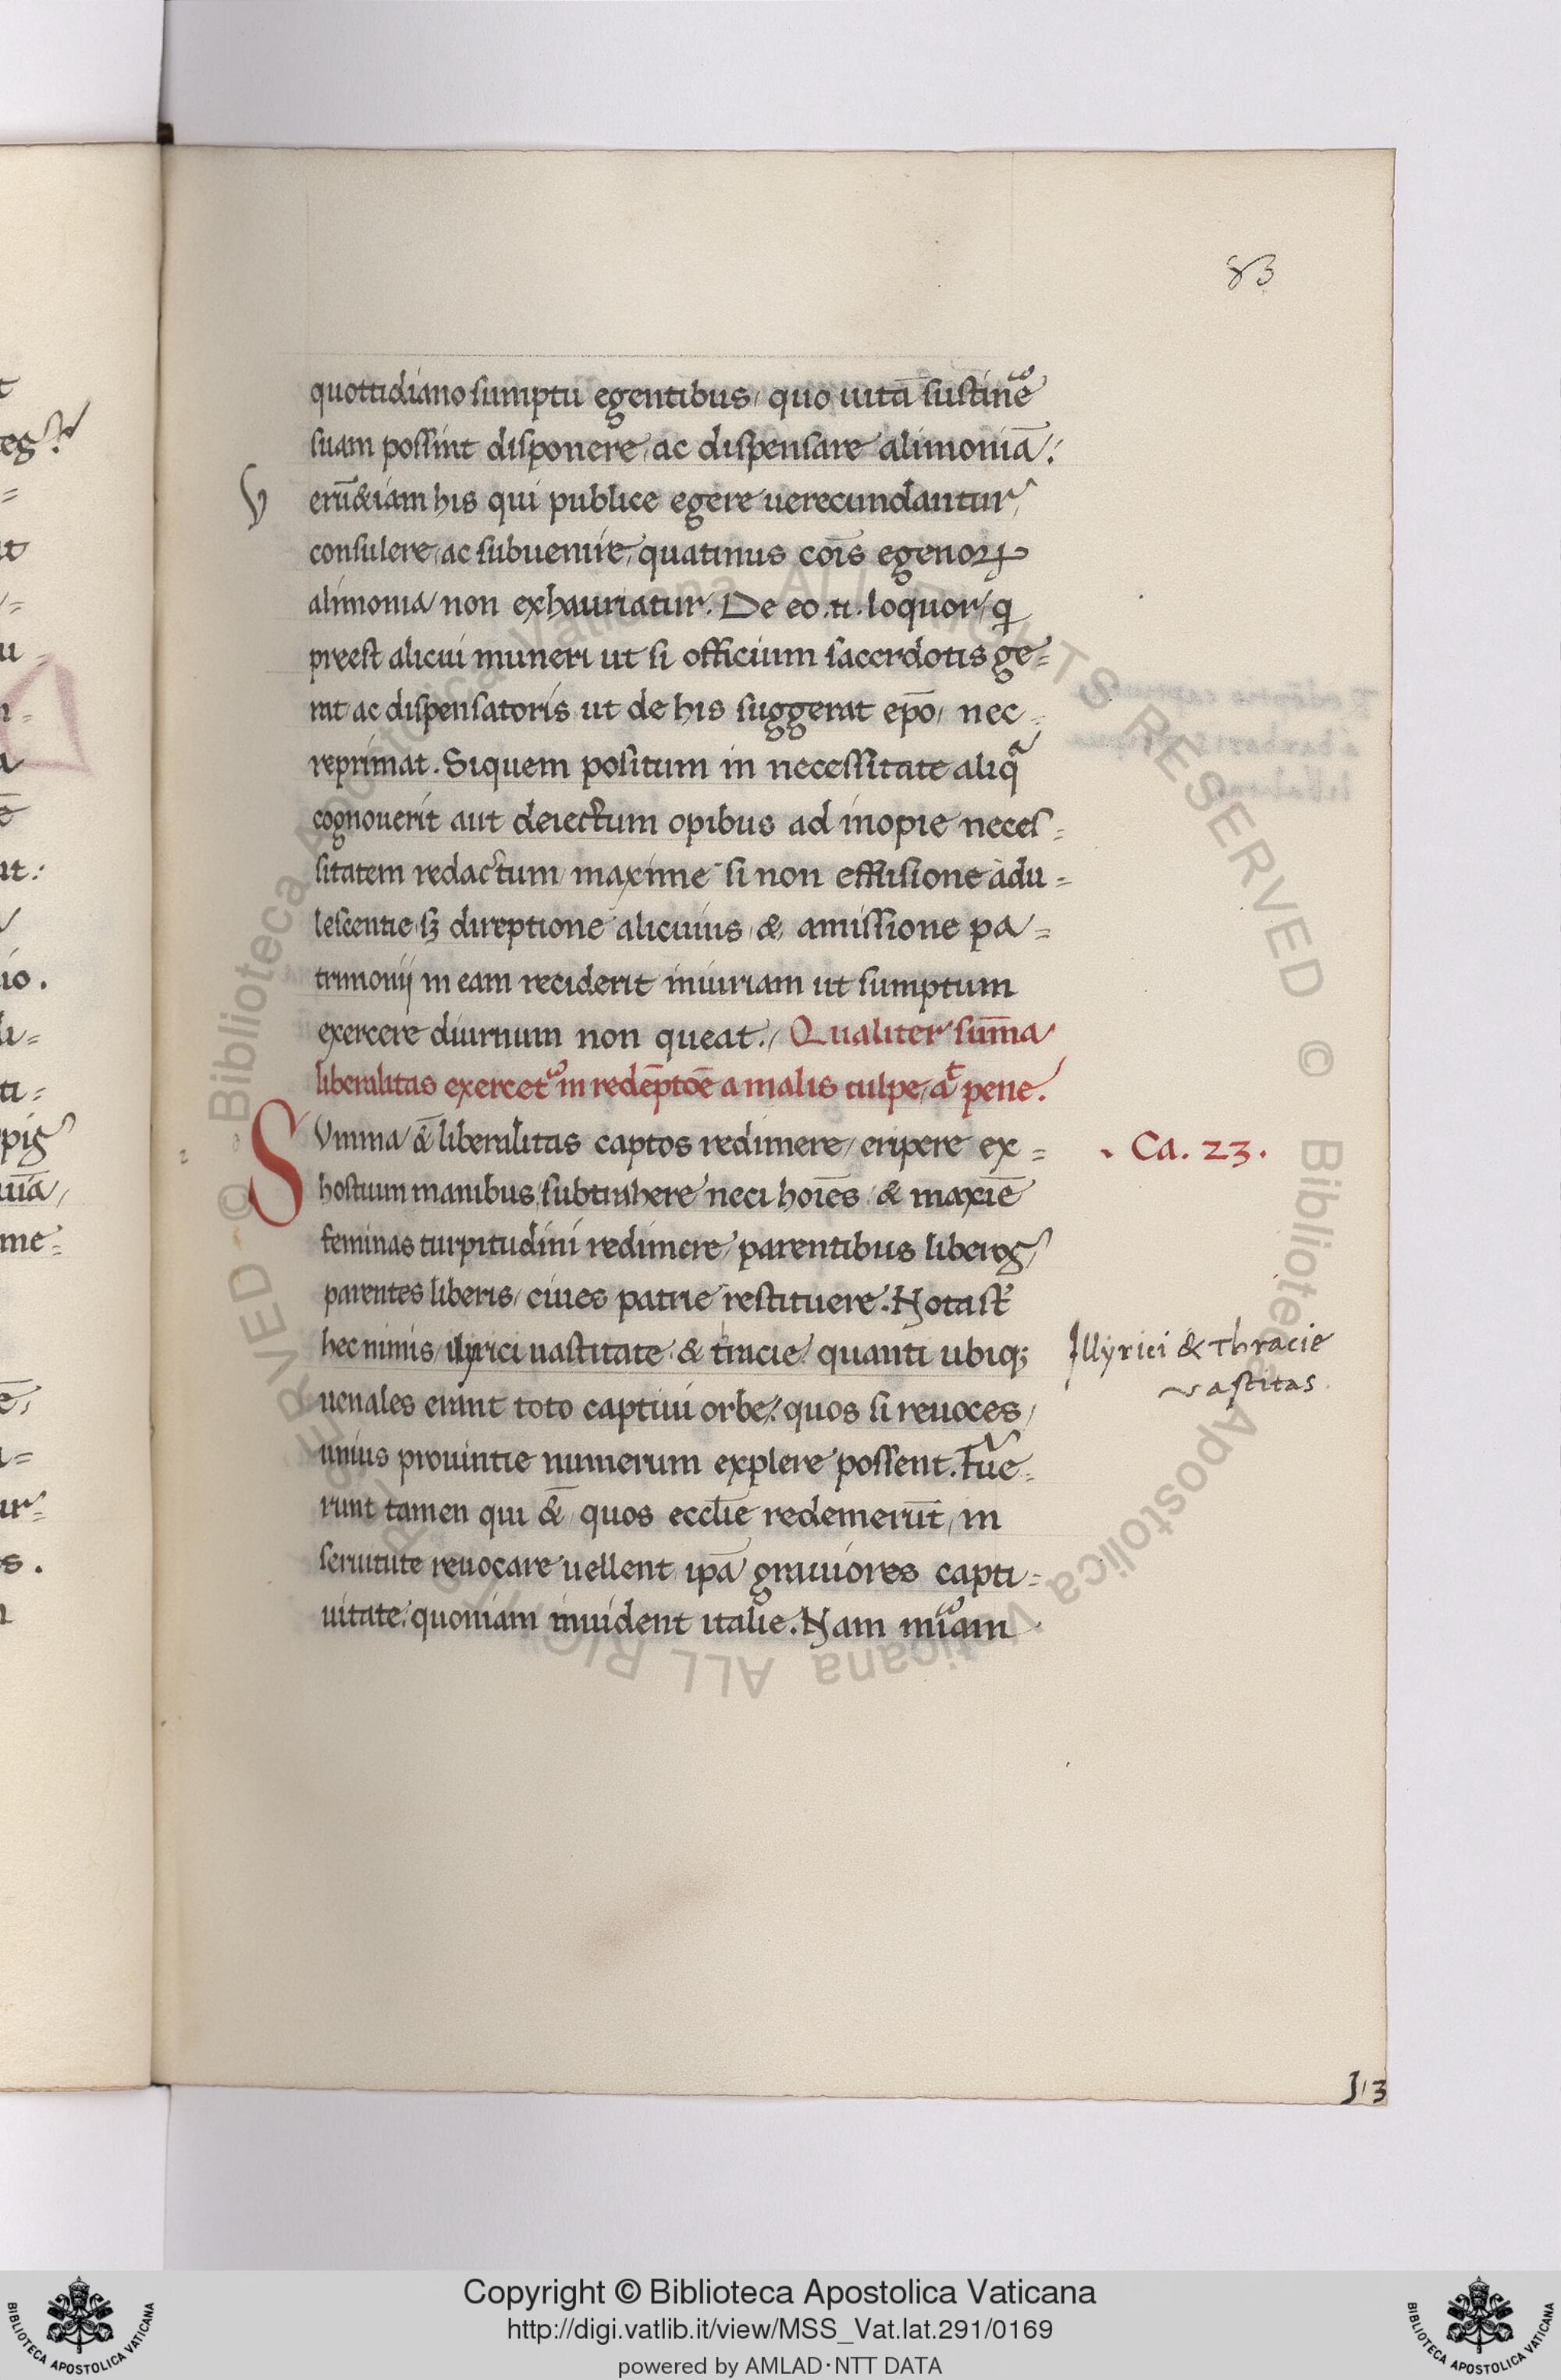 83
quottidiano sumptu egentibus, quo uitā sustinē
suam possint disponere, ac dispensare alimoniā:
V erū & iam his qui publice egere uerecundantur,
consulere, ac subuenire, quatinus cōis egenoꝝ
alimonia non exhauriatur. De eo .n. loquor, qi
preest alicui muneri ut si officium sacerdotis ge=
rat ac dispensatoris, ut de his suggerat epō, nec
reprimat. Siquem positum in necessitate aliqa
cognouerit aut deiectum opibus ad inopie neces=
sitatem redactum, maxime si non effusione adu=
lescentie, sꝫ direptione alicuius, & amissione pa=
trimonij in eam reciderit iniuriam ut sumptum
exercere diurnum non queat. Qualiter sūma
liberalitas exercet in redēptōe a malis culpe, at pene.
S Vmma &̄ liberalitas captos redimere, eripere ex=
hostium manibus, subtrahere neci hoīes, & maxīe
feminas turpitudini redimere, parentibus liberoꝫ,
parentes liberis, ciues patrie restituere. Nota st̄
hec nimis, illyrici uastitate, & tracie: quanti ubiqꝫ
uenales erant toto captiui orbe: quos si reuoces,
unius prouintie numerum explere possent. Fue=
runt tamen qui &̄, quos eccl̄ie redemerūt, in
seruitute reuocare uellent ipā grauiores capti=
uitate: quoniam inuident italie. Nam mīam
Ca. 23.
Illyrici & Thracie
uastitas.
J 13
Copyright © Biblioteca Apostolica Vaticana
http://digi.vatlib.it/view/MSS_Vat.lat.291/0169
powered by AMLAD·NTT DATA
BIBLIOTECA APOSTOLICA VATICANA
BIBLIOTECA APOSTOLICA VATICANA